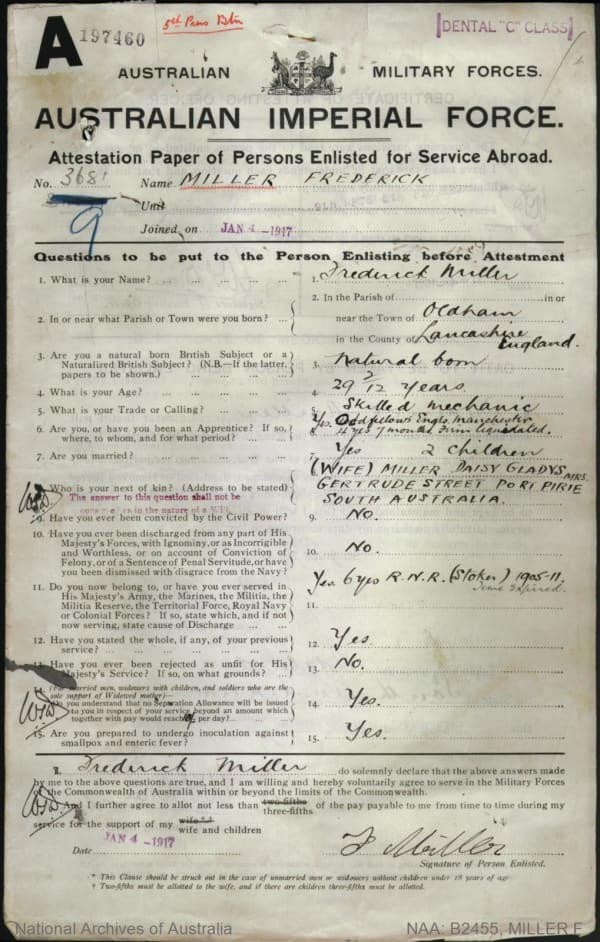 A
197460
5th Pnrs Btn
DENTAL "C" CLASS
AUSTRALIAN MILITARY FORCES.
AUSTRALIAN IMPERIAL FORCE.
Attestation Paper of Persons Enlisted for Service Abroad.
No. 3681 Name MILLER FREDERICK
Unit
9
Joined on JAN 4 - 1917
Questions to be put to the Person Enlisting before Attestment
1. What is your Name? ... 1. Frederick Miller
2. In or near what Parish or Town were you born? ... 2. In the Parish of in or
near the Town of Oldham
in the County of Lancashire England.
3. Are you a natural born British Subject or a
Naturalized British Subject? (N.B.—If the latter,
papers to be shown.) 3. Natural born
4. What is your Age? 4. 29 2/12 Years.
5. What is your Trade or Calling? 5. Skilled mechanic
6. Are you, or have you been an Apprentice? If so,
where, to whom, and for what period? 6. Yes. Oddfellows Engls. Manchester
4 yrs 7 months Firm liquidated.
7. Are you married? 7. Yes 2 children
8. Who is your next of kin? (Address to be stated) (WIFE) MILLER DAISY GLADYS MRS.
The answer to this question shall not be
in the nature of a Will
GERTRUDE STREET PORT PIRIE
SOUTH AUSTRALIA.
9. Have you ever been convicted by the Civil Power? 9. No.
10. Have you ever been discharged from any part of His
Majesty's Forces, with Ignominy, or as Incorrigible
and Worthless, or on account of Conviction of
Felony, or of a Sentence of Penal Servitude, or have
you been dismissed with disgrace from the Navy? 10. No.
11. Do you now belong to, or have you ever served in
His Majesty's Army, the Marines, the Militia, the
Militia Reserve, the Territorial Force, Royal Navy
or Colonial Forces? If so, state which, and if not
now serving, state cause of Discharge 11. Yes 6 yrs R.N.R. (Stoker) 1905-11.
Time expired.
12. Have you stated the whole, if any, of your previous
service? 12. Yes
13. Have you ever been rejected as unfit for His
Majesty's Service? If so, on what grounds? 13. No.
14. (For married men, widowers with children, and soldiers who are the
sole support of Widowed mother)—
Do you understand that no Separation Allowance will be issued
to you in respect of your service beyond an amount which
together with pay would reach per day? 14. Yes.
15. Are you prepared to undergo inoculation against
smallpox and enteric fever? 15. Yes.
I, Frederick Miller do solemnly declare that the above answers made
by me to the above questions are true, and I am willing and hereby voluntarily agree to serve in the Military Forces
of the Commonwealth of Australia within or beyond the limits of the Commonwealth.
And I further agree to allot not less than two-fifths three-fifths of the pay payable to me from time to time during my
service for the support of my wife wife and children
Date JAN 4 - 1917 F Miller
Signature of Person Enlisted.
* This Clause should be struck out in the case of unmarried men or widowers without children under 18 years of age
† Two-fifths must be allotted to the wife, and if there are children three-fifths must be allotted.
National Archives of Australia NAA: B2455, MILLER F